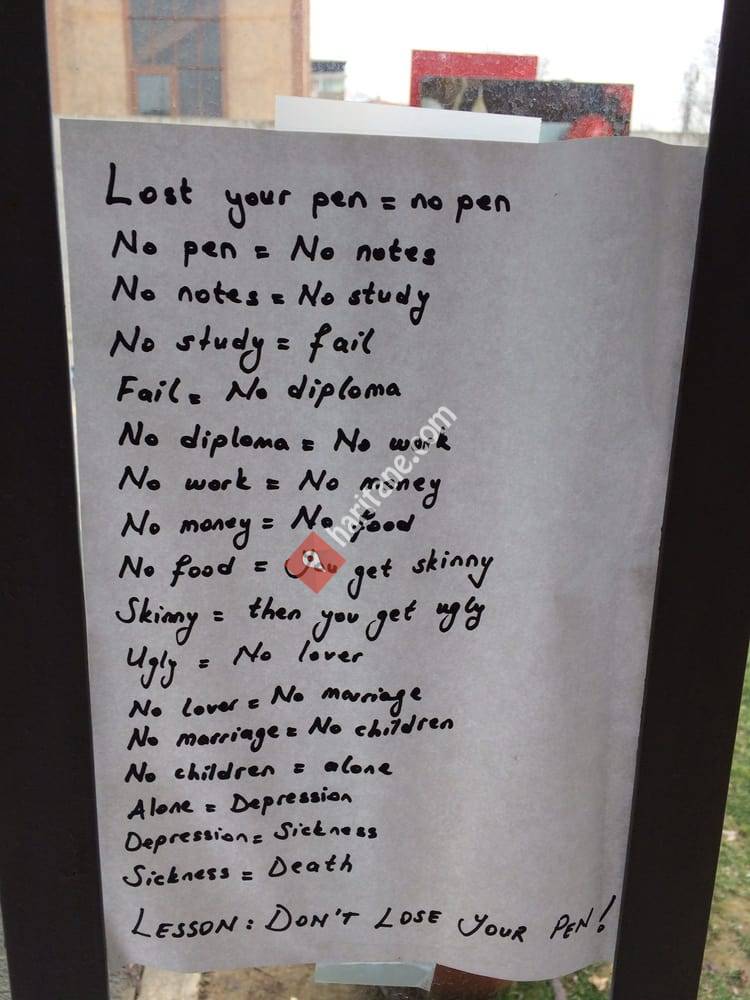 Lost your pen = no pen
No pen = No notes
No notes = No study
No study = fail
Fail = No diploma
No diploma = No work
No work = No money
No money = No food
No food = You get skinny
Skinny = then you get ugly
Ugly = No lover
No lover = No marriage
No marriage = No children
No children = alone
Alone = Depression
Depression = Sickness
Sickness = Death
LESSON: DON'T LOSE YOUR PEN!
haritane.com